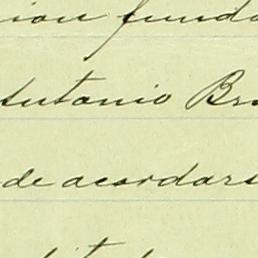 ion funda
Antonio Br
de acordars